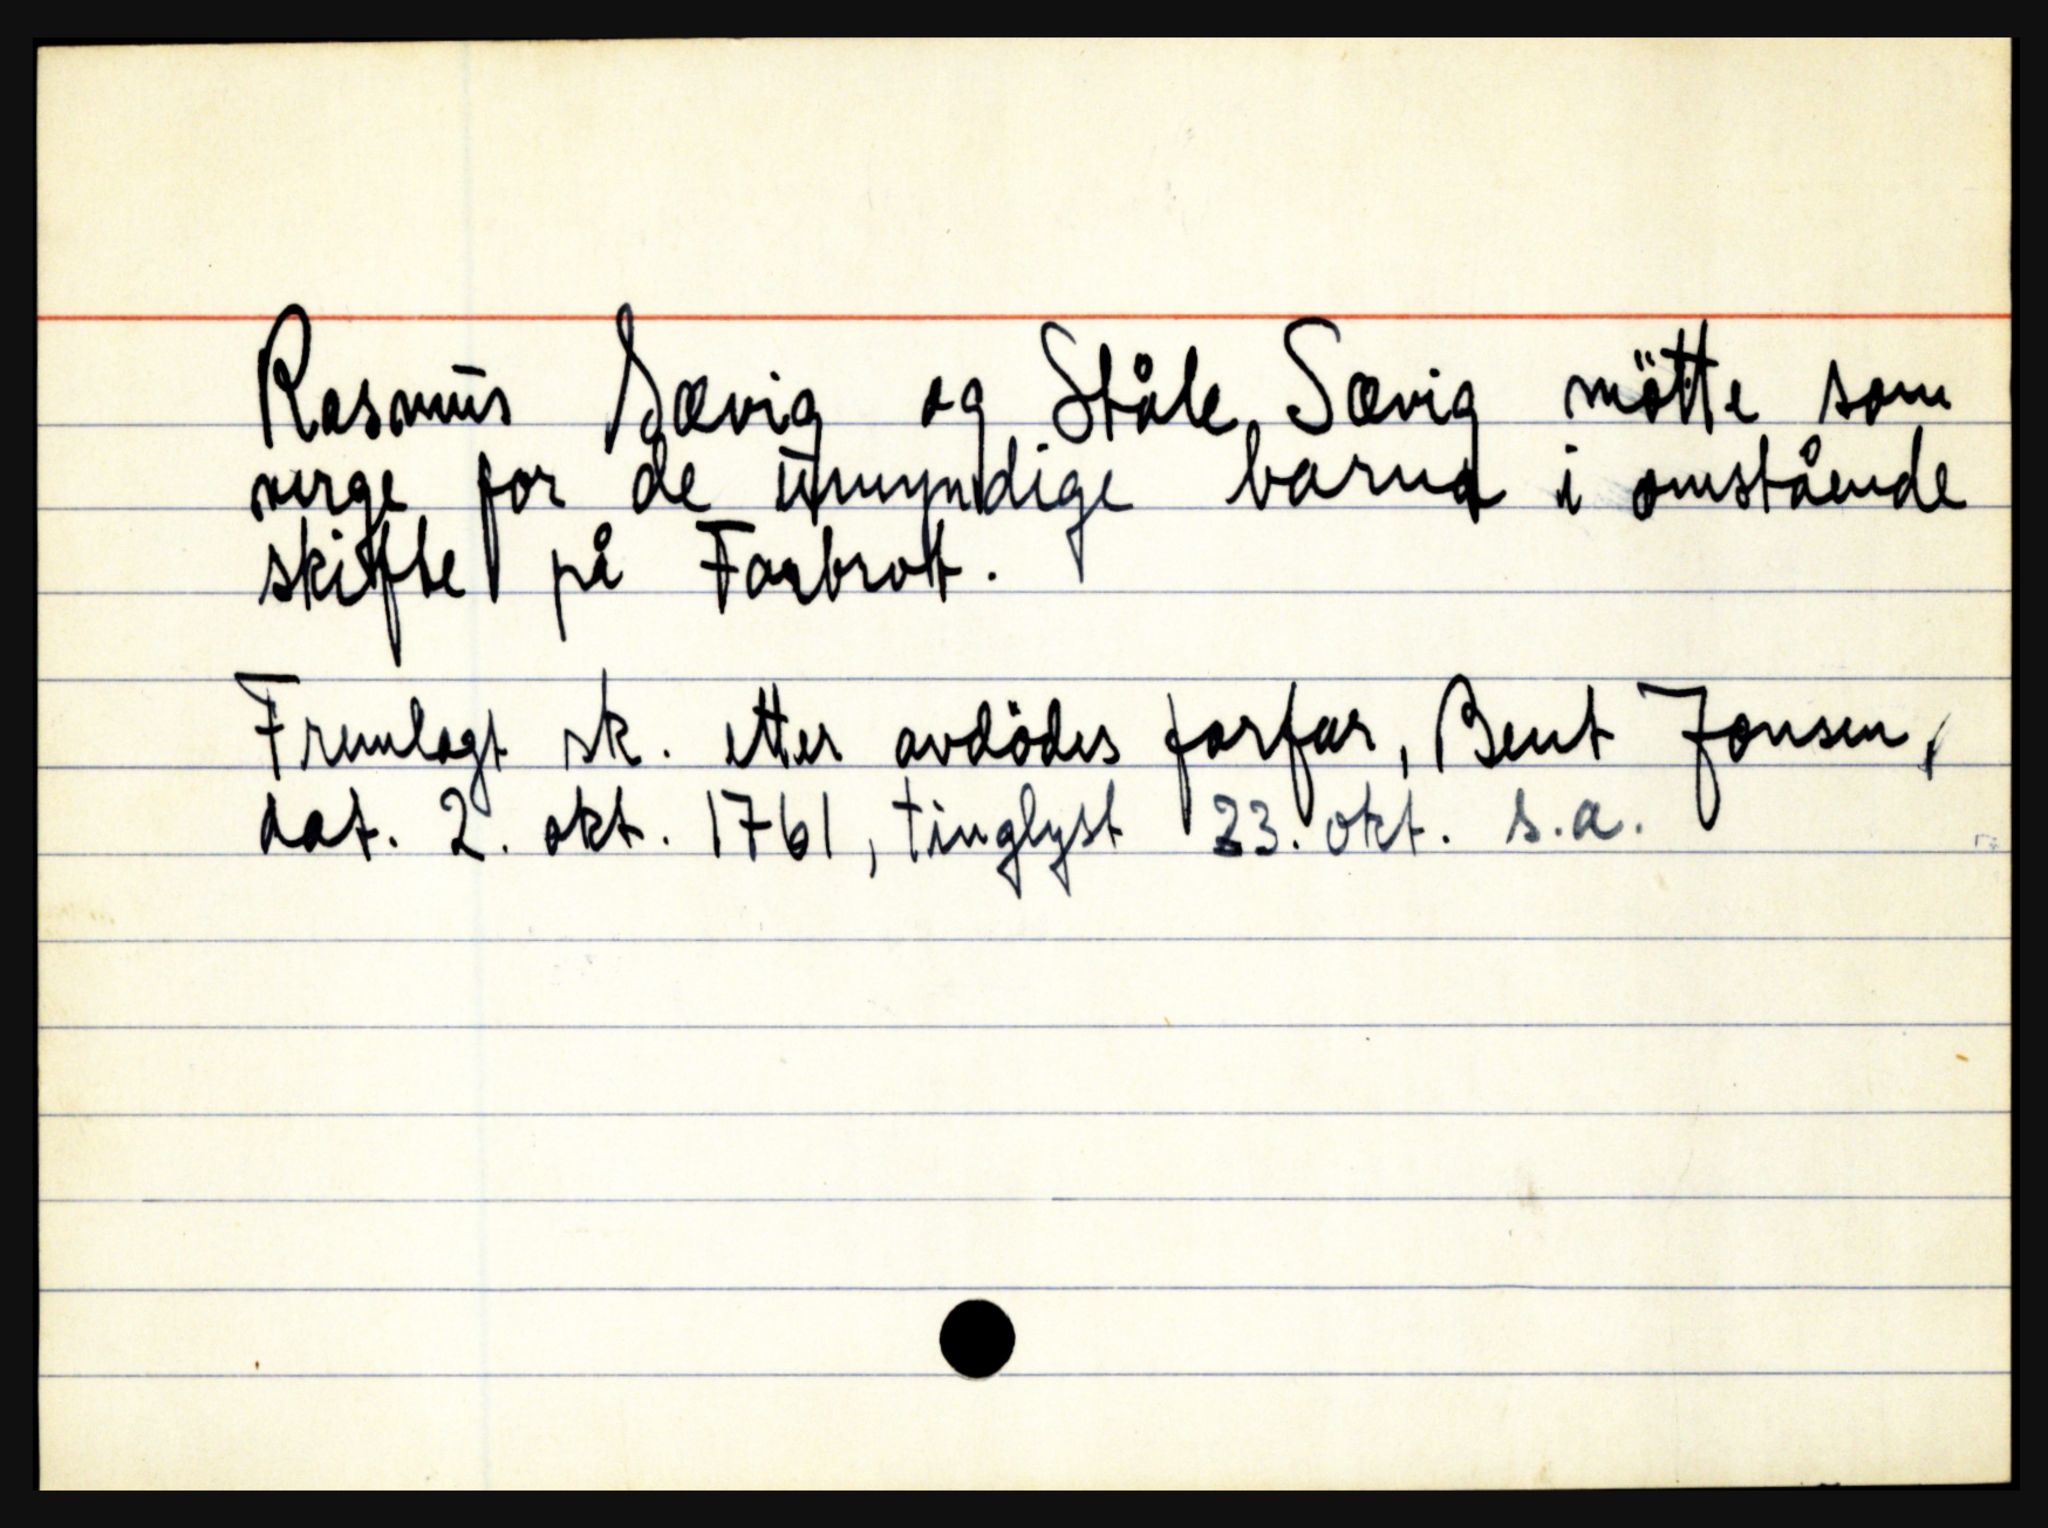 Rasmus Sævig og Ståle Sævig mötte som
verge for de umyndige barna i omstående
skifte på Farbrot.
Fremlagt sk. etter avdödes farfar, Bent Jonsen,
dat. 2. okt. 1761, tinglyst 23. okt. s.a.